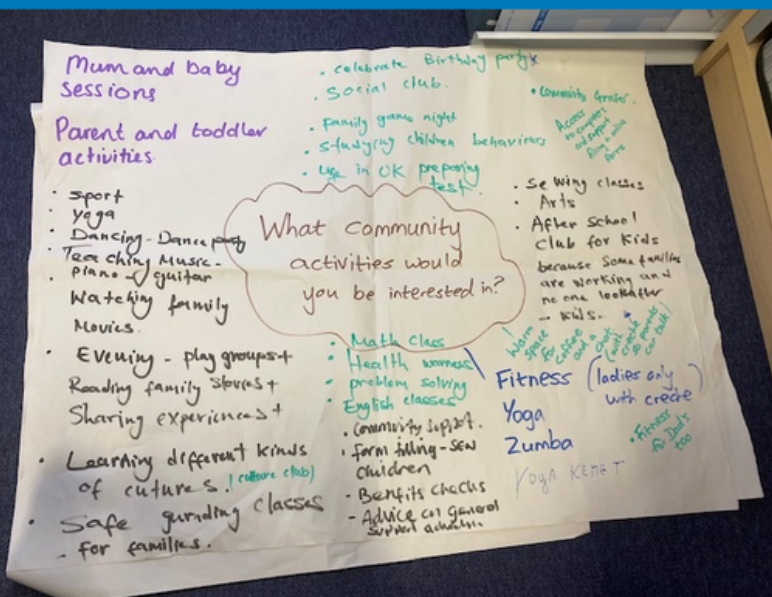 Mum and baby
sessions
Parent and toddler
activities
• sport
• yoga
• Dancing - Dance
• Teaching Music -
• piano - guitar
Watching family
Movies.
• Evening - play groups +
Reading family stories +
Sharing experiences +
• Learning different kinds
of cutures. (culture club)
• Safe gurding classes
- for families.
• celebrate Birthday party x
• Social club.
• Family game night
• studying children behaviours
• in UK preparing
test.
What community
activities would
you be interested in?
• Community
Access
to computers
and support
filling in online
forms
• Sewing classes
• Arts
• After School
Club for Kids
because some families
are working and
no one lookafter
- kids.
• Math Class
• Health
• problem solving
• English classes
• Community Support.
• form filling - SEN
children
- Benefits checks
- Advice on general
support
Warm
space
for
coffee
and a
chat
(with
creche
so parents
can talk)
Fitness (ladies only
with creche)
Yoga
Zumba
Yoga
• Fitness
for Dad's
too